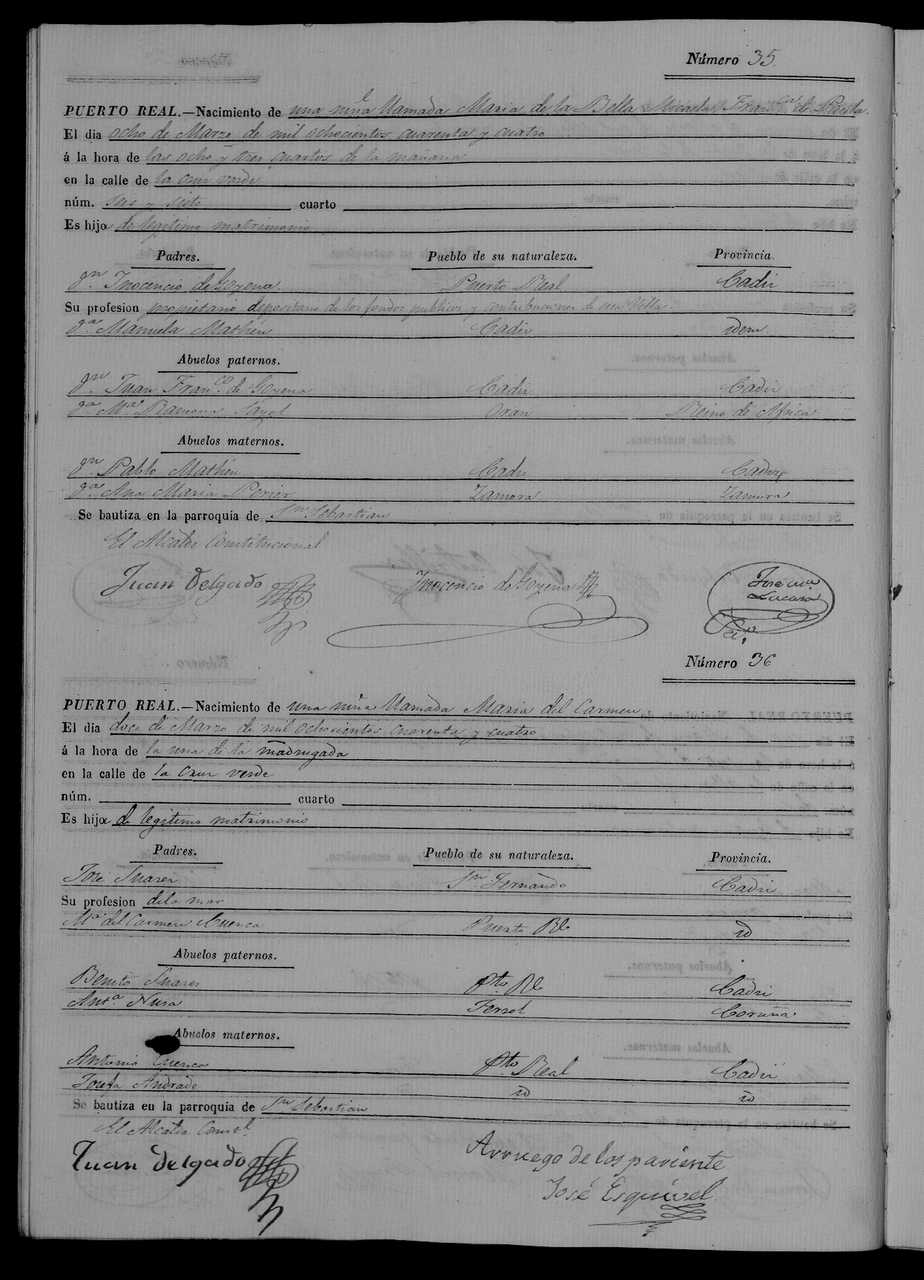 Número 35.
PUERTO REAL.—Nacimiento de una niña llamada Maria de la Bella Micaela Franca. de Paula.
El dia ocho de Marzo de mil ochocientos cuarenta y cuatro
á la hora de las ocho y tres cuartos de la mañana
en la calle de la cruz verde
núm. seis y siete cuarto
Es hijo de legitimo matrimonio
Padres. Pueblo de su naturaleza. Provincia.
Dn. Inocencio de Goyena Puerto Real Cadiz
Su profesion propietario depositario de los fondos publicos y contribuciones de esa Villa
Da. Manuela Matheu Cadiz idem
Abuelos paternos.
Dn. Juan Franco. de Goyena Cadiz Cadiz
Da. Ma. Ramona Oran Reino de Africa
Abuelos maternos.
Dn. Pablo Matheu Cadiz Cadiz
Da. Ana Maria Zamora Zamora
Se bautiza en la parroquia de Sn. Sebastian
El Alcalde Constitucional
Juan Delgado Inocencio de Goyena
Número 36
PUERTO REAL.—Nacimiento de una niña llamada Maria del Carmen
El dia doce de Marzo de mil ochocientos cuarenta y cuatro
á la hora de la una de la madrugada
en la calle de la cruz verde
núm. cuarto
Es hija de legitimo matrimonio
Padres. Pueblo de su naturaleza. Provincia.
José Suarez Sn. Fernando Cadiz
Su profesion de la mar
Ma. del Carmen Cuenca Puerto Rl. id
Abuelos paternos.
Benito Suarez Pto. Rl. Cadiz
Anta. Ferrol Coruña.
Abuelos maternos.
Antonio Cuenca Pto. Real Cadiz
Josefa Andrade id id
Se bautiza en la parroquia de Sn. Sebastian
El Alcalde Consl.
Juan Delgado Arruego de los pariente
José Esquivel